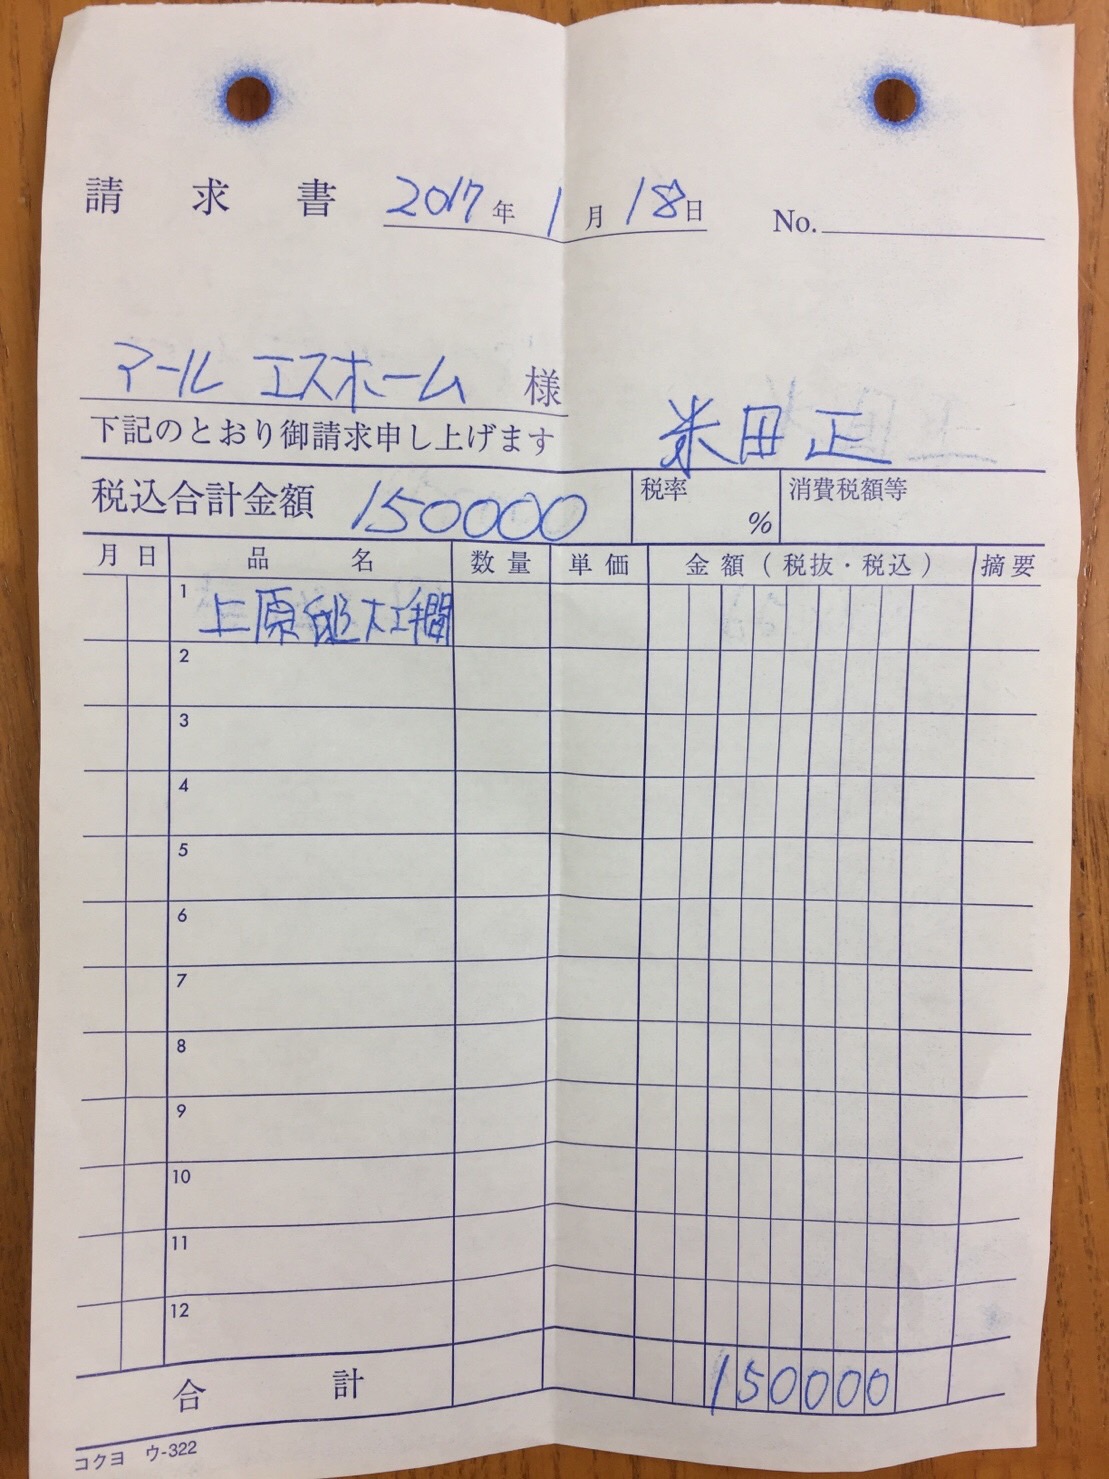 請求書 2017年 1月 18日 No.
アールエスホーム 様
下記のとおり御請求申し上げます
米田 正
税込合計金額 150000 税率 % 消費税額等
月 日 品名 数量 単価 金額(税抜・税込) 摘要
1 上原邸大工手間
2
3
4
5
6
7
8
9
10
11
12
合計 150000
コクヨ ウ-322